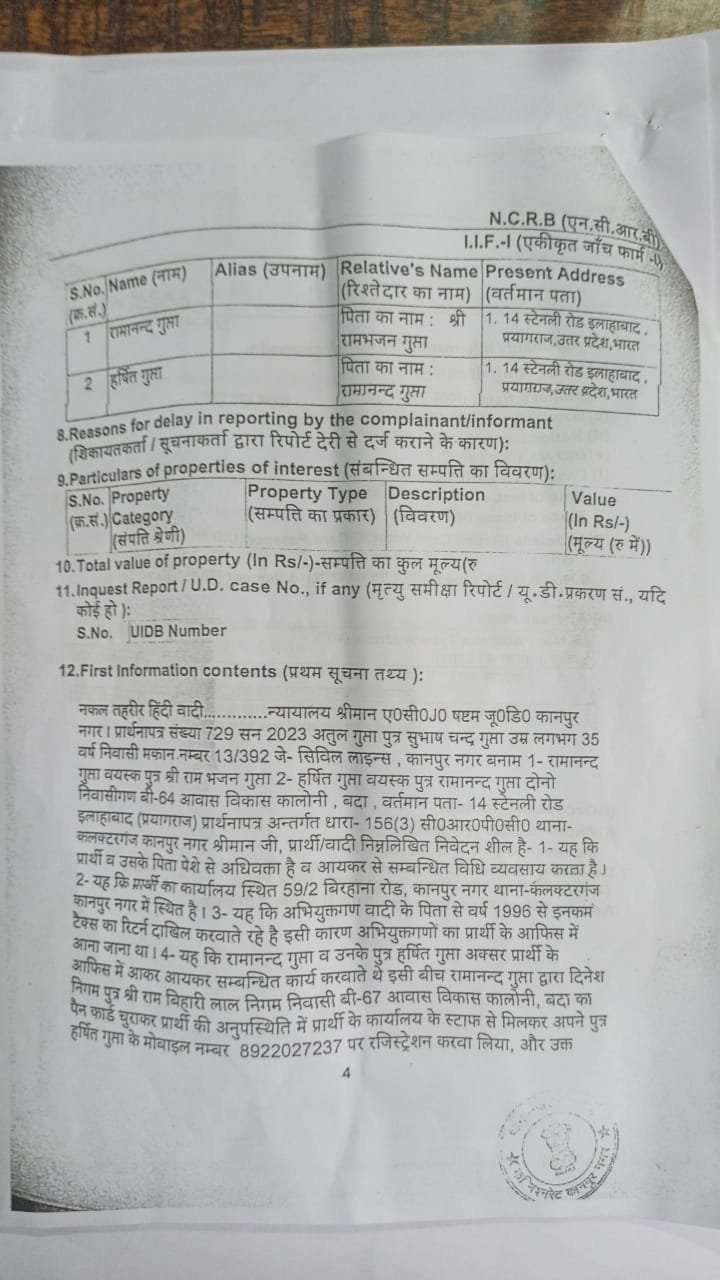 N.C.R.B (एन.सी.आर.बी)
I.I.F.-I (एकीकृत जाँच फार्म -I)
S.No. Name (नाम) Alias (उपनाम) Relative's Name Present Address
(क्र.सं.) (रिश्तेदार का नाम) (वर्तमान पता)
1 रामानन्द गुप्ता पिता का नाम : श्री 1. 14 स्टेनली रोड इलाहाबाद ,
रामभजन गुप्ता प्रयागराज,उत्तर प्रदेश,भारत
2 हर्षित गुप्ता पिता का नाम : 1. 14 स्टेनली रोड इलाहाबाद ,
रामानन्द गुप्ता प्रयागराज,उत्तर प्रदेश,भारत
8.Reasons for delay in reporting by the complainant/informant
(शिकायतकर्ता / सूचनाकर्ता द्वारा रिपोर्ट देरी से दर्ज कराने के कारण):
9.Particulars of properties of interest (संबन्धित सम्पत्ति का विवरण):
S.No. Property Property Type Description Value
(क्र.सं.) Category (सम्पत्ति का प्रकार) (विवरण) (In Rs/-)
(संपति श्रेणी) (मूल्य (रु में))
10.Total value of property (In Rs/-)-सम्पत्ति का कुल मूल्य(रु
11.Inquest Report / U.D. case No., if any (मृत्यु समीक्षा रिपोर्ट / यू.डी.प्रकरण सं., यदि
कोई हो ):
S.No. UIDB Number
12.First Information contents (प्रथम सूचना तथ्य ):
नकल तहरीर हिंदी वादी.............न्यायालय श्रीमान ए0सी0J0 षष्टम जू0डि0 कानपुर
नगर । प्रार्थनापत्र संख्या 729 सन 2023 अतुल गुप्ता पुत्र सुभाष चन्द गुप्ता उम्र लगभग 35
वर्ष निवासी मकान.नम्बर 13/392 जे- सिविल लाइन्स , कानपुर नगर बनाम 1- रामानन्द
गुप्ता वयस्क पुत्र श्री राम भजन गुप्ता 2- हर्षित गुप्ता वयस्क पुत्र रामानन्द गुप्ता दोनो
निवासीगण बी-64 आवास विकास कालोनी , बदा , वर्तमान पता- 14 स्टेनली रोड
इलाहाबाद (प्रयागराज) प्रार्थनापत्र अन्तर्गत धारा- 156(3) सी0आर0पी0सी0 थाना-
कलक्टरगंज कानपुर नगर श्रीमान जी, प्रार्थी/वादी निम्नलिखित निवेदन शील है- 1- यह कि
प्रार्थी व उसके पिता पेशे से अधिवक्ता है व आयकर से सम्बन्धित विधि व्यवसाय करता है ।
2- यह कि प्रार्थी का कार्यालय स्थित 59/2 बिरहाना रोड, कानपुर नगर थाना-कलक्टरगंज
कानपुर नगर में स्थित है । 3- यह कि अभियुक्तगण वादी के पिता से वर्ष 1996 से इनकम
टैक्स का रिटर्न दाखिल करवाते रहे है इसी कारण अभियुक्तगणों का प्रार्थी के आफिस में
आना जाना था । 4- यह कि रामानन्द गुप्ता व उनके पुत्र हर्षित गुप्ता अक्सर प्रार्थी के
आफिस में आकर आयकर सम्बन्धित कार्य करवाते थे इसी बीच रामानन्द गुप्ता द्वारा दिनेश
निगम पुत्र श्री राम बिहारी लाल निगम निवासी बी-67 आवास विकास कालोनी, बदा का
पैन कार्ड चुराकर प्रार्थी की अनुपस्थिति में प्रार्थी के कार्यालय के स्टाफ से मिलकर अपने पुत्र
हर्षित गुप्ता के मोबाइल नम्बर 8922027237 पर रजिस्ट्रेशन करवा लिया, और उक्त
4
कानपुर नगर